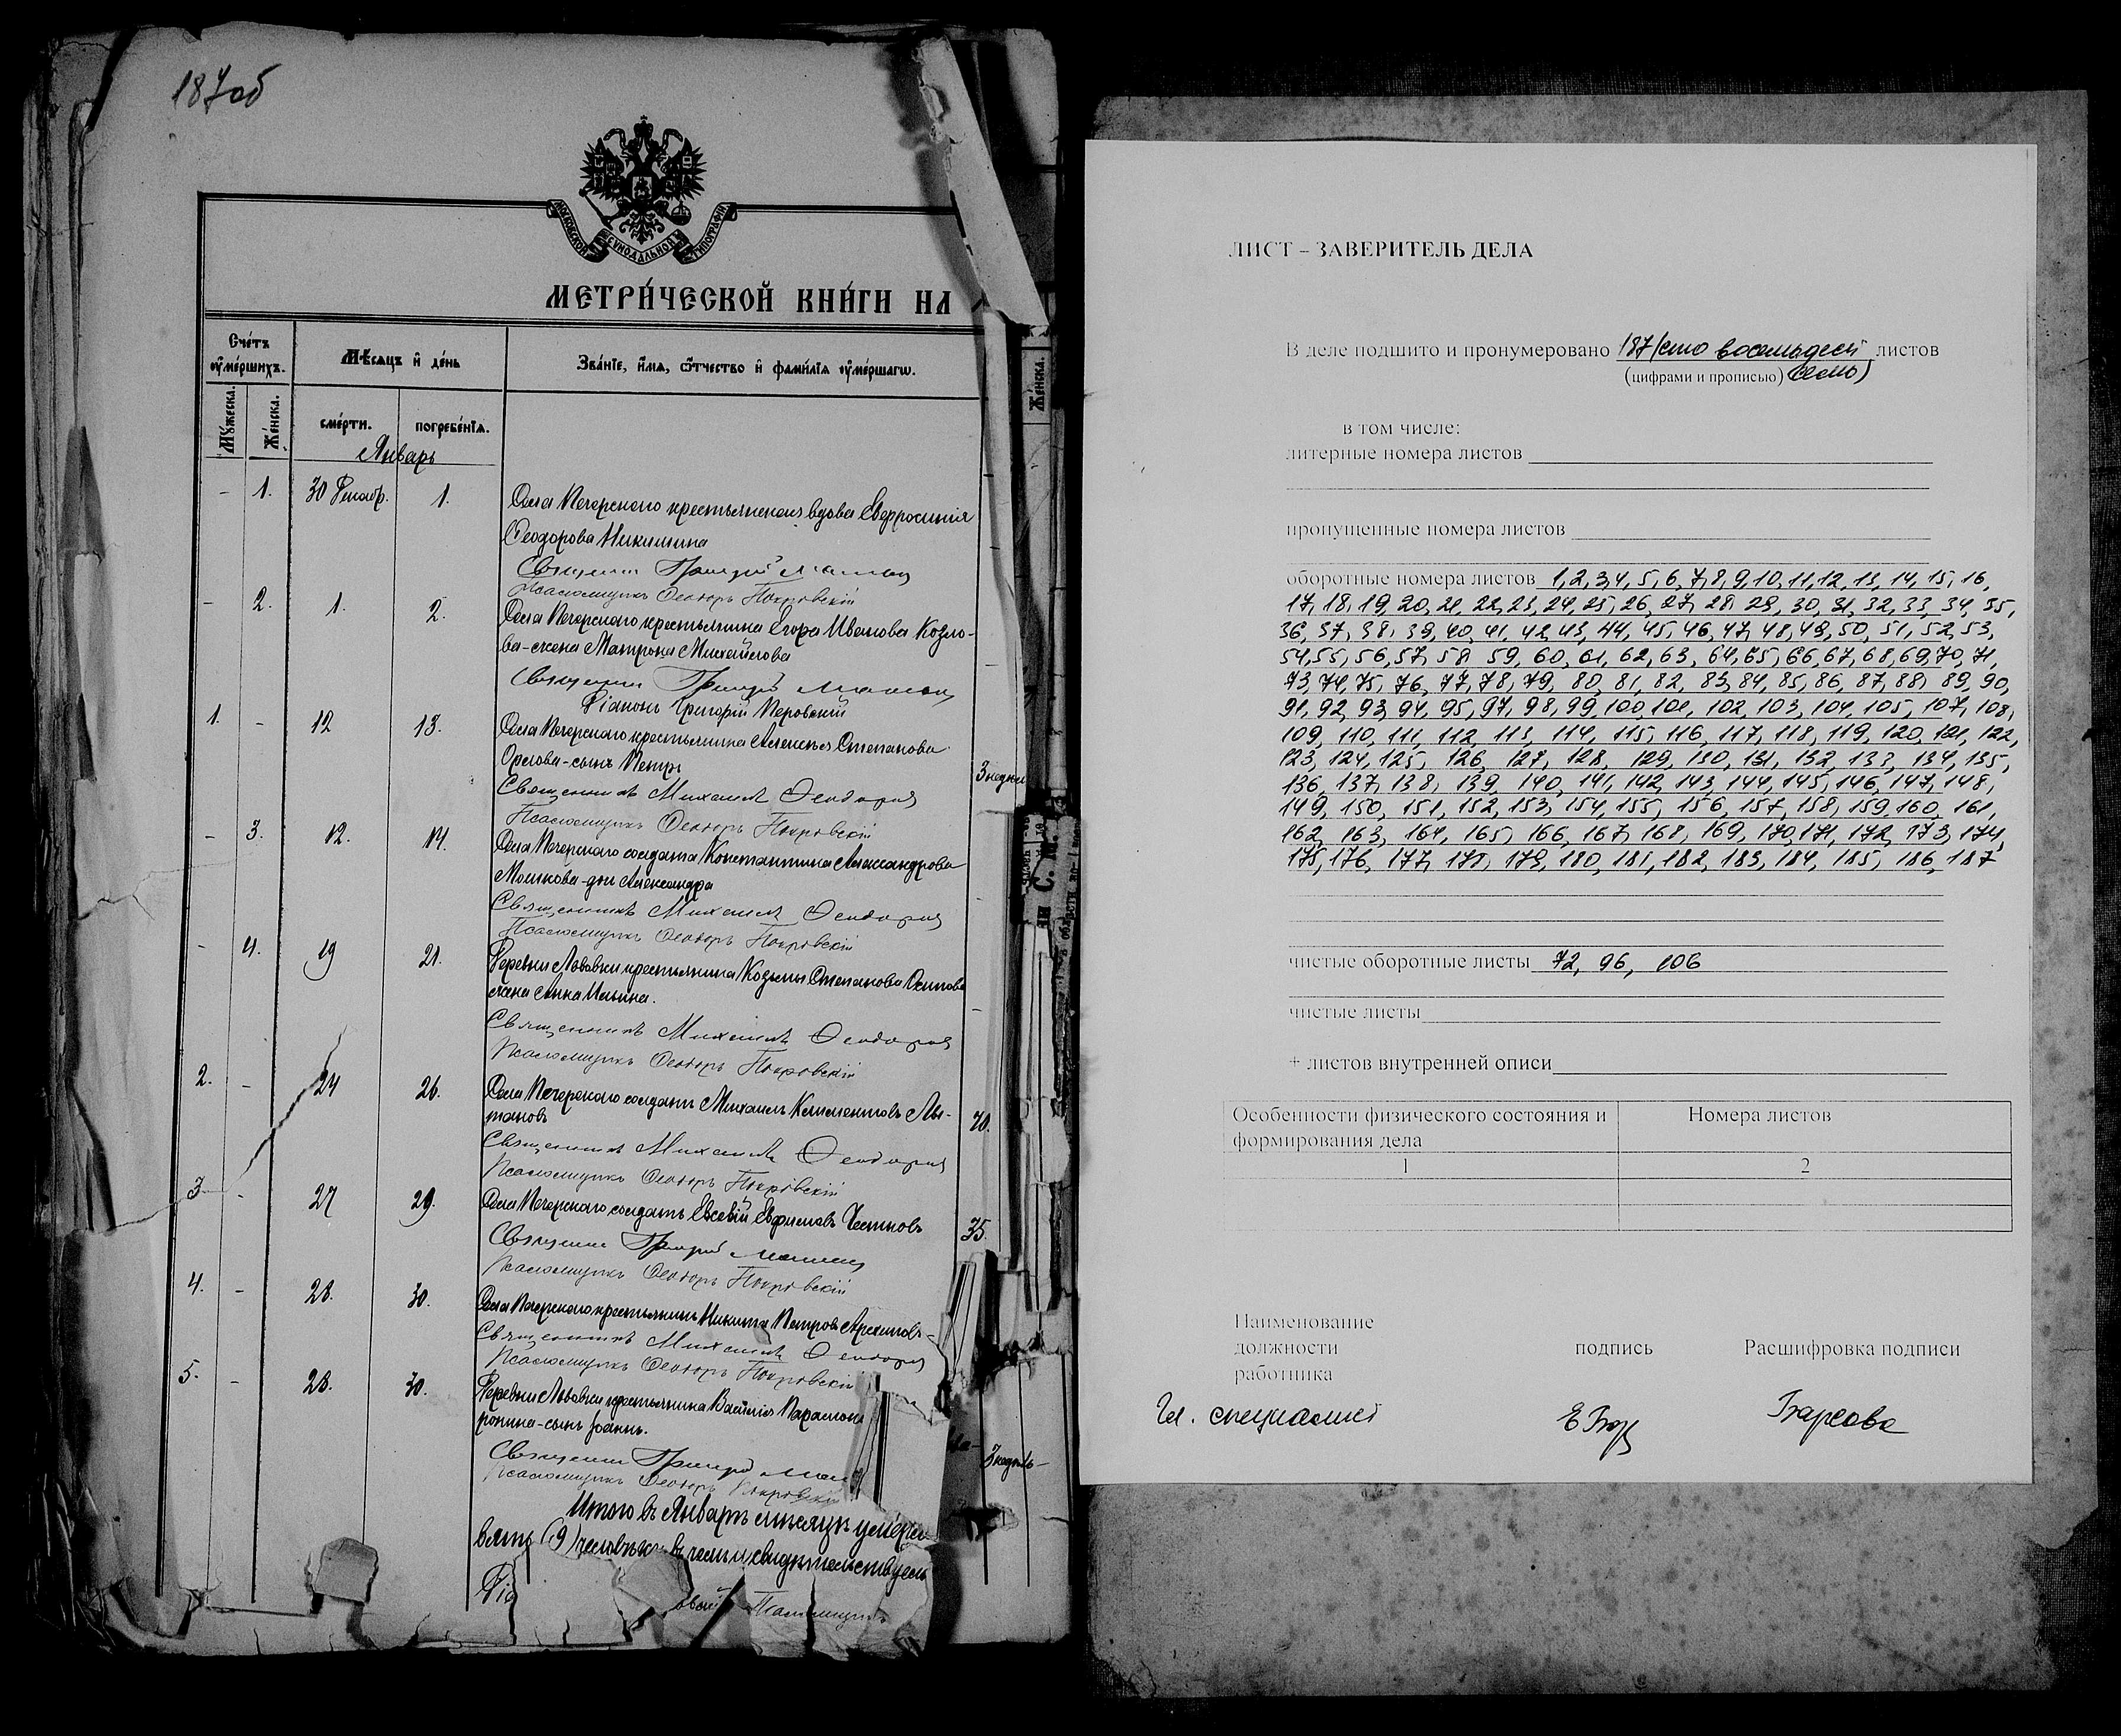 187об
МОСКОВСКОЙ СѴНОДАЛЬНОЙ ТИПОГРАФІИ
МЕТРИ́ЧЕСКОЙ КНИ́ГИ НА
Сче́тъ ᲂу҆ме́ршихъ.
Мѣ́сяцъ и҆ де́нь
Зва́нїе, и҆́мѧ, ѻ҆́тчество и҆ фами́лїѧ ᲂу҆ме́ршагѡ.
Мꙋ́жеска.
Же́нска.
сме́рти.
погребе́нїѧ.
Же́нска.
Январь
- 1. 30 Декабр. 1. Села Печерскаго крестьянская вдова Евфросинія
Ѳеодорова Никишина
Священник Григорій
Псаломщикъ Ѳеодоръ Покровскій
- 2. 1. 2. Села Печерскаго крестьянина Егора Иванова Козло-
ва-жена Матрона Михайлова
Священник Григорій
Діаконъ Григорій Перовскій
1. - 12 13. Села Печерскаго крестьянина Алексѣя Степанова
Орлова-сынъ Петръ
3 недѣли
Священникъ Михаилъ
Псаломщикъ Ѳеодоръ Покровскій
- 3. 12. 14. Села Печерскаго солдата Константина Александрова
Мошкова-дочь Александра
Священникъ Михаилъ
Псаломщикъ Ѳеодоръ Покровскій
- 4. 19 21. Деревни Львовки крестьянина Козьмы Степанова Осипова
жена Анна Ильина.
Священникъ Михаилъ
Псаломщикъ Ѳеодоръ Покровскій
2. - 24 26. Села Печерскаго солдатъ Михаилъ Климентовъ Лы-
тановъ
70.
Священникъ Михаилъ
Псаломщикъ Ѳеодоръ Покровскій
3 - 27 29. Села Печерскаго солдатъ Евсевій Ефимовъ Честновъ
35.
Священник Григорій
Псаломщикъ Ѳеодоръ Покровскій
4. - 28. 30. Села Печерскаго крестьянинъ Никита Петровъ Архиповъ-
Священникъ Михаилъ
Псаломщикъ Ѳеодоръ Покровскій
5. - 28. 30. Деревни Львовки крестьянина Василія
ронина-сынъ Іоаннъ.
3 недѣль-
Священник Григорій
Псаломщикъ Ѳеодоръ Покровскій
Итого въ Январѣ мѣсяцѣ умерло
вять (9) человѣкъ въ чемъ и свидѣтельствуемъ
Псаломщикъ
ЛИСТ – ЗАВЕРИТЕЛЬ ДЕЛА
В деле подшито и пронумеровано 187 (сто восемьдесят листов
(цифрами и прописью) семь)
в том числе:
литерные номера листов
пропущенные номера листов
оборотные номера листов 1, 2, 3, 4, 5, 6, 7, 8, 9, 10, 11, 12, 13, 14, 15, 16,
17, 18, 19, 20, 21, 22, 23, 24, 25, 26, 27, 28, 29, 30, 31, 32, 33, 34, 35,
36, 37, 38, 39, 40, 41, 42, 43, 44, 45, 46, 47, 48, 49, 50, 51, 52, 53,
54, 55, 56, 57, 58 59, 60, 61, 62, 63, 64, 65, 66, 67, 68, 69, 70, 71,
73, 74, 75, 76, 77, 78, 79, 80, 81, 82, 83, 84, 85, 86, 87, 88, 89, 90,
91, 92, 93, 94, 95, 97, 98, 99, 100, 101, 102, 103, 104, 105, 107, 108,
109, 110, 111, 112, 113, 114, 115, 116, 117, 118, 119, 120, 121, 122,
123, 124, 125, 126, 127, 128, 129, 130, 131, 132, 133, 134, 135,
136, 137, 138, 139, 140, 141, 142, 143, 144, 145, 146, 147, 148,
149, 150, 151, 152, 153, 154, 155, 156, 157, 158, 159, 160, 161,
162, 163, 164, 165, 166, 167, 168, 169, 170, 171, 172, 173, 174,
175, 176, 177, 178, 179, 180, 181, 182, 183, 184, 185, 186, 187
чистые оборотные листы 72, 96, 106
чистые листы
+ листов внутренней описи
Особенности физического состояния и формирования дела
Номера листов
1
2
Наименование
должности
работника
подпись
Расшифровка подписи
Гл. специалист
Барсова